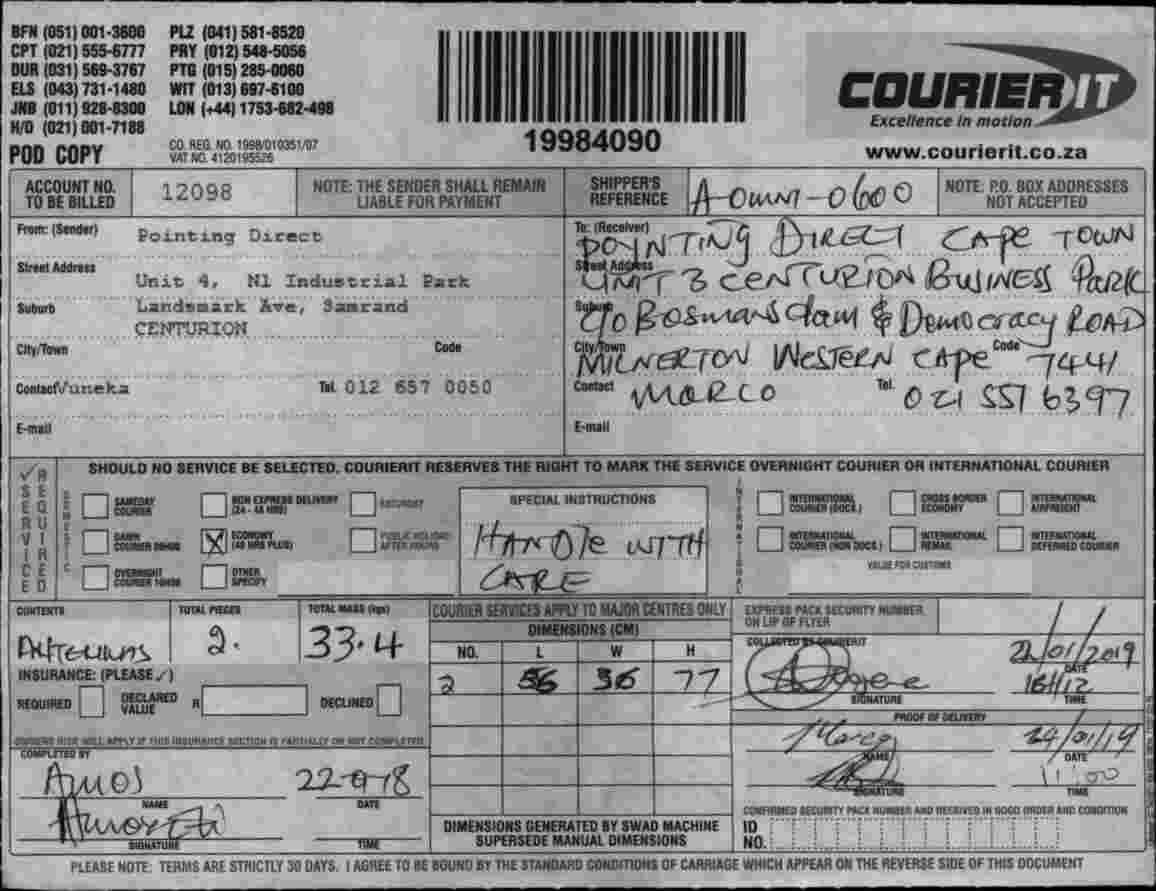 BFN (051) 001-3600 PLZ (041) 581-8520
CPT (021) 555-6777 PRY (012) 548-5056
DUR (031) 569-3767 PTG (015) 285-0060
ELS (043) 731-1480 WIT (013) 697-6100
JNB (011) 928-8300 LON (+44) 1753-682-498
H/O (021) 001-7188
POD COPY
CO. REG. NO. 1998/010351/07
VAT NO. 4120195526
19984090
COURIERIT
Excellence in motion
www.courierit.co.za
ACCOUNT NO. TO BE BILLED
12098
NOTE: THE SENDER SHALL REMAIN LIABLE FOR PAYMENT
SHIPPER'S REFERENCE
A-OMNI-0600
NOTE: P.O. BOX ADDRESSES NOT ACCEPTED
From: (Sender) Pointing Direct
Street Address Unit 4, N1 Industrial Park
Suburb Landsmark Ave, Samrand
CENTURION
City/Town Code
Contact Vuneka Tel. 012 657 0050
E-mail
To: (Receiver) POYNTING DIRECT CAPE TOWN
Street Address UNIT 3 CENTURION BUSINESS PARK
Suburb C/O Bosmansdam & Democracy ROAD
City/Town MILNERTON WESTERN CAPE Code 7441
Contact MARCO Tel. 021 551 6397
E-mail
✓ SERVICE REQUIRED
SHOULD NO SERVICE BE SELECTED, COURIERIT RESERVES THE RIGHT TO MARK THE SERVICE OVERNIGHT COURIER OR INTERNATIONAL COURIER
DOMESTIC
SAMEDAY COURIER
NON EXPRESS DELIVERY (24 - 48 HRS)
SATURDAY
DAWN COURIER
X ECONOMY (48 HRS PLUS)
PUBLIC HOLIDAY AFTER HOURS
OVERNIGHT COURIER
OTHER SPECIFY
SPECIAL INSTRUCTIONS
HANDLE WITH
CARE
INTERNATIONAL
INTERNATIONAL COURIER (DOCS.)
CROSS BORDER ECONOMY
INTERNATIONAL AIRFREIGHT
INTERNATIONAL COURIER (NON DOCS.)
INTERNATIONAL REMAIL
INTERNATIONAL DEFERRED COURIER
VALUE FOR CUSTOMS
CONTENTS
TOTAL PIECES
2.
TOTAL MASS (kgs)
33.4
INSURANCE: (PLEASE ✓)
REQUIRED
DECLARED VALUE R
DECLINED
OWNERS RISK WILL APPLY IF THIS INSURANCE SECTION IS PARTIALLY OR NOT COMPLETED
COMPLETED BY
Amos
NAME
DATE
SIGNATURE
TIME
COURIER SERVICES APPLY TO MAJOR CENTRES ONLY
DIMENSIONS (CM)
NO. L W H
2 56 36 77
DIMENSIONS GENERATED BY SWAD MACHINE
SUPERSEDE MANUAL DIMENSIONS
EXPRESS PACK SECURITY NUMBER
ON LIP OF FLYER
COLLECTED BY COURIERIT
22/01/2019
DATE
16H12
SIGNATURE
TIME
PROOF OF DELIVERY
Marco
NAME
24/01/19
DATE
11:00
SIGNATURE
TIME
CONFIRMED SECURITY PACK NUMBER AND RECEIVED IN GOOD ORDER AND CONDITION
ID NO.
PLEASE NOTE: TERMS ARE STRICTLY 30 DAYS. I AGREE TO BE BOUND BY THE STANDARD CONDITIONS OF CARRIAGE WHICH APPEAR ON THE REVERSE SIDE OF THIS DOCUMENT